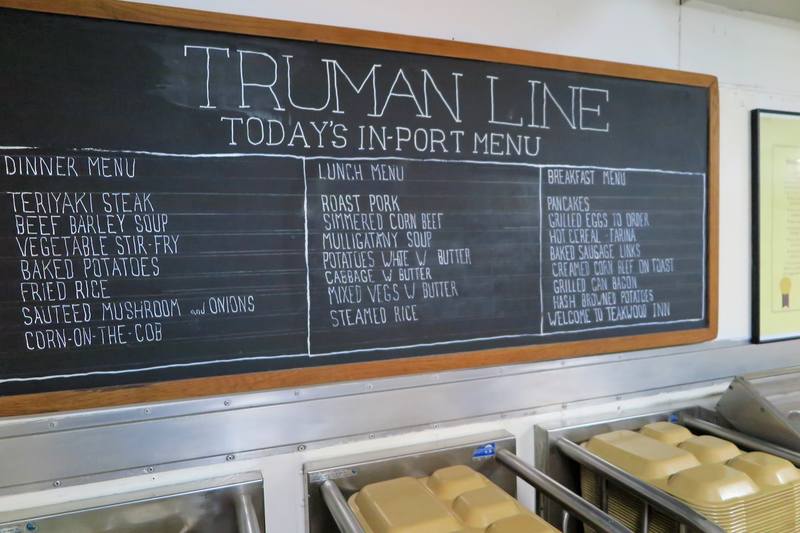 TRUMAN LINE
TODAY'S IN-PORT MENU
DINNER MENU
TERIYAKI STEAK
BEEF BARLEY SOUP
VEGETABLE STIR-FRY
BAKED POTATOES
FRIED RICE
SAUTEED MUSHROOM and ONIONS
CORN-ON-THE-COB
LUNCH MENU
ROAST PORK
SIMMERED CORN BEEF
MULLIGATANY SOUP
POTATOES WHTE W/ BUTTER
CABBAGE W/ BUTTER
MIXED VEGS W/ BUTTER
STEAMED RICE
BREAKFAST MENU
PANCAKES
GRILLED EGGS TO ORDER
HOT CEREAL - FARINA
BAKED SAUSAGE LINKS
CREAMED CORN BEEF ON TOAST
GRILLED CAN BACON
HASH BROWNED POTATOES
WELCOME TO TEAKWOOD INN